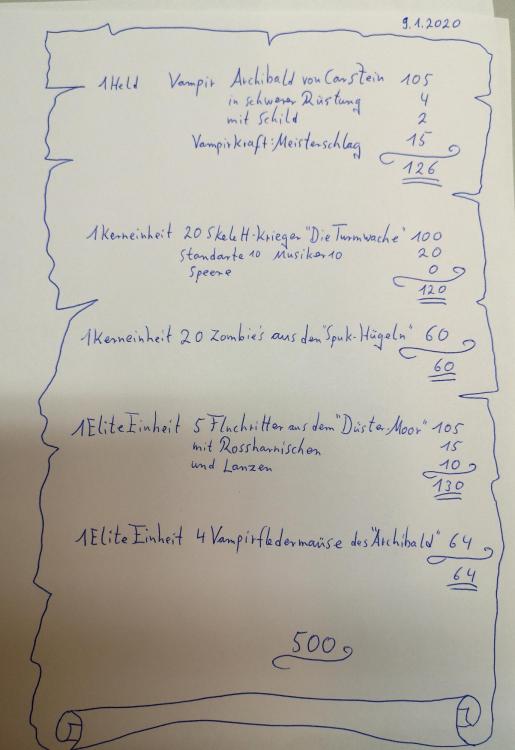 9.1.2020
1 Held Vampir Archibald von Carstein 105
in schwerer Rüstung 4
mit Schild 2
Vampirkraft: Meisterschlag 15
126
1 Kerneinheit 20 Skelett-Krieger "Die Turmwache" 100
Standarte 10 Musiker 10 20
Speere 0
120
1 Kerneinheit 20 Zombie's aus den "Spuk-Hügeln" 60
60
1 Elite Einheit 5 Fluchritter aus dem "Düster-Moor" 105
mit Rossharnischen 15
und Lanzen 10
130
1 Elite Einheit 4 Vampirfledermäuse des "Archibald" 64
64
500